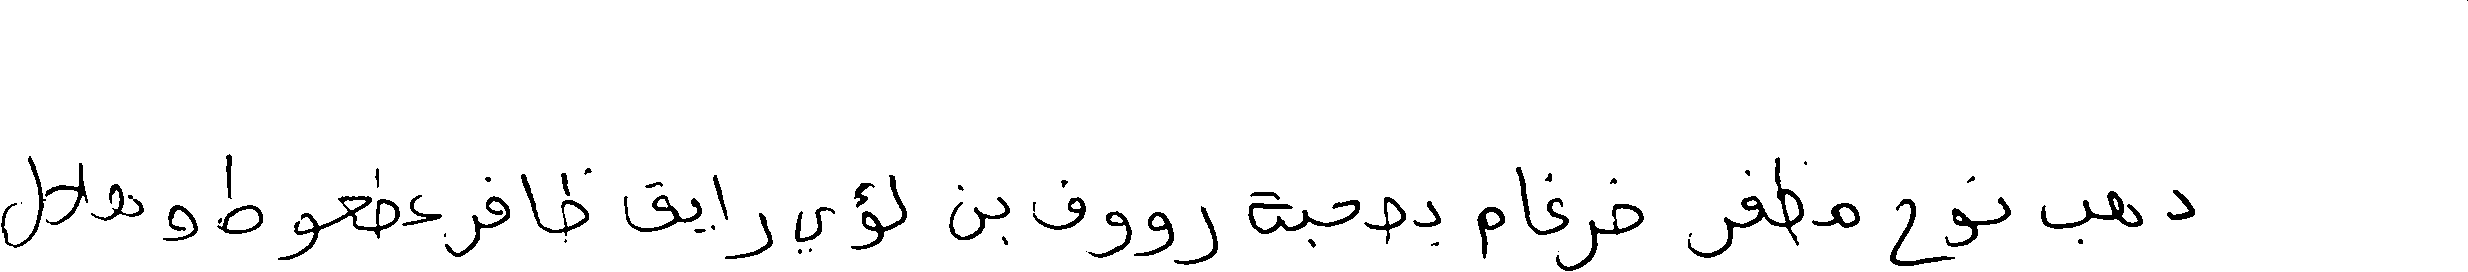 دهب نوح مظفر ضرغام بصحبة رووف بن لؤي رايق ظافر عطعوط و هلال